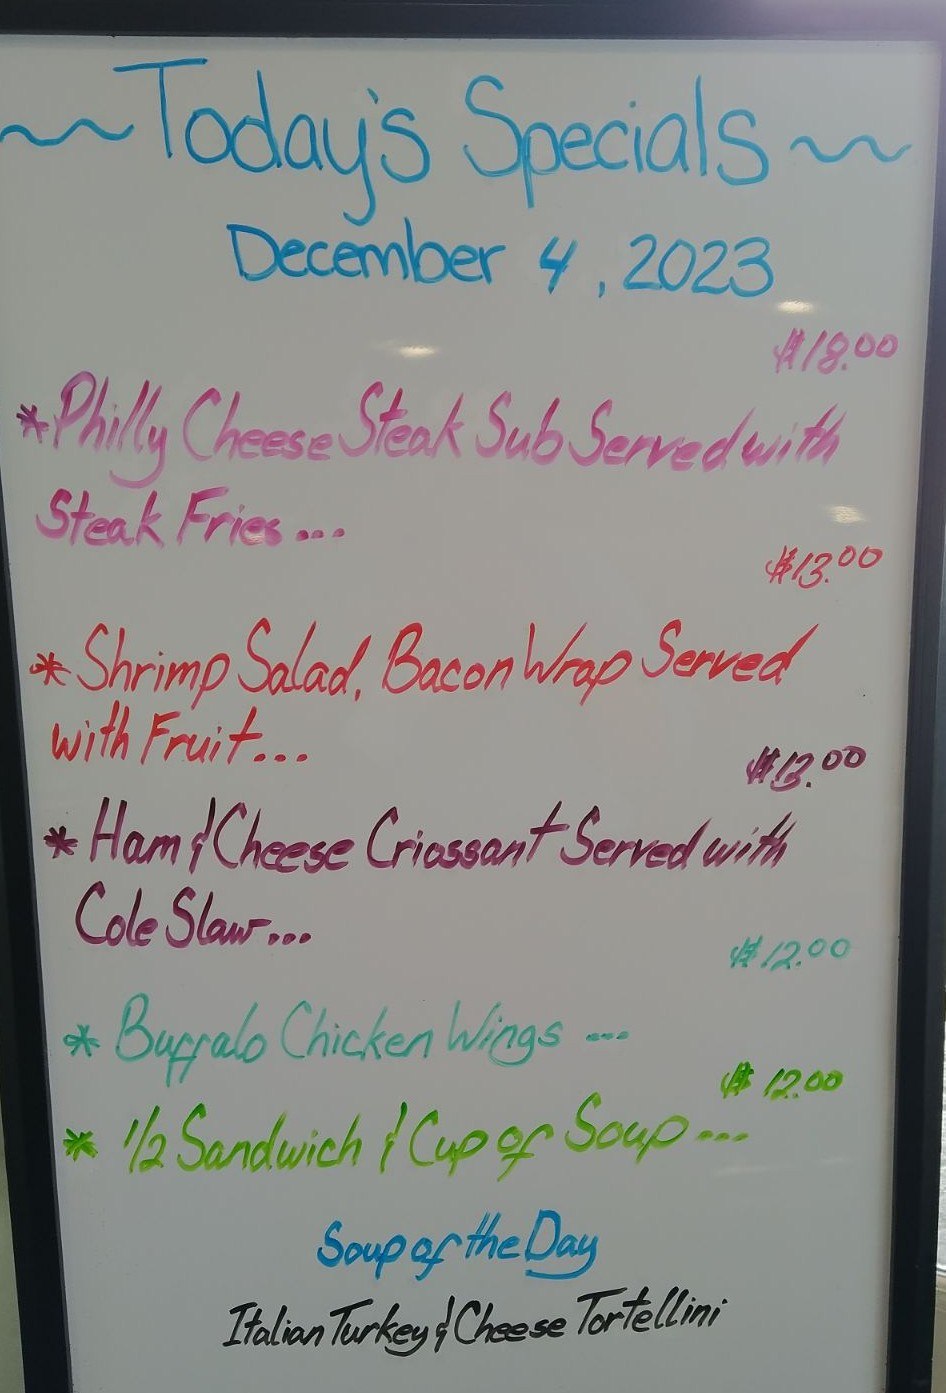 ~Today's Specials~
December 4, 2023
$18.00
*Philly Cheese Steak Sub Served with
Steak Fries...
$13.00
*Shrimp Salad, Bacon Wrap Served
with Fruit...
$13.00
*Ham & Cheese Criossant Served with
Cole Slaw...
$12.00
*Buffalo Chicken Wings ...
$12.00
*1/2 Sandwich & Cup of Soup...
Soup of the Day
Italian Turkey & Cheese Tortellini